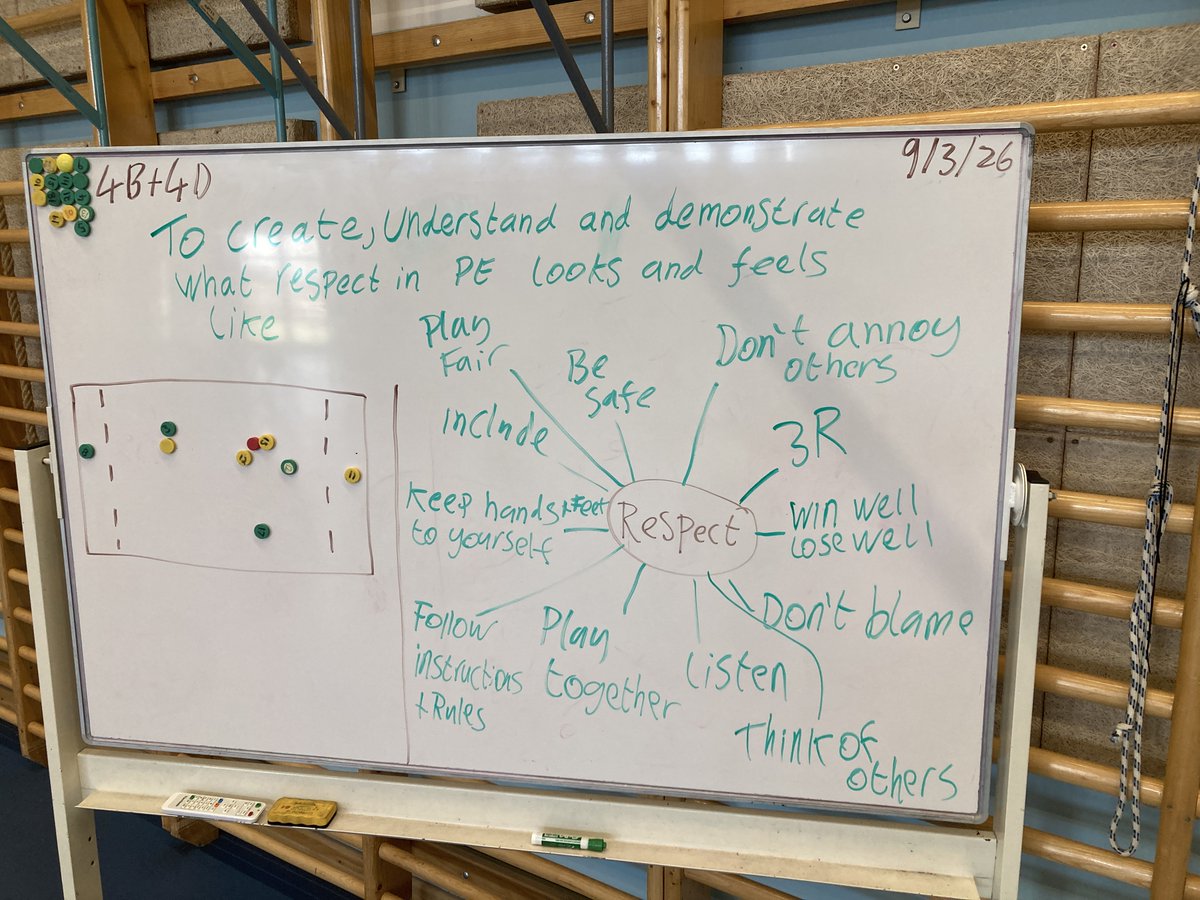 4B+4D
9/3/26
To create, Understand and demonstrate
what respect in PE looks and feels
like
Play
Fair
Be
safe
Don't annoy
others
include
3R
Keep hands + Feet
to yourself
Respect
win well
lose well
Follow
instructions
+ Rules
Play
together
Listen
Don't blame
Think of
others